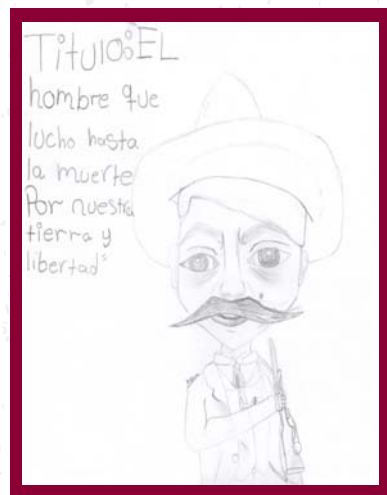 Titulo: EL
hombre que
lucho hasta
la muerte
Por nuestra
tierra y
libertad"